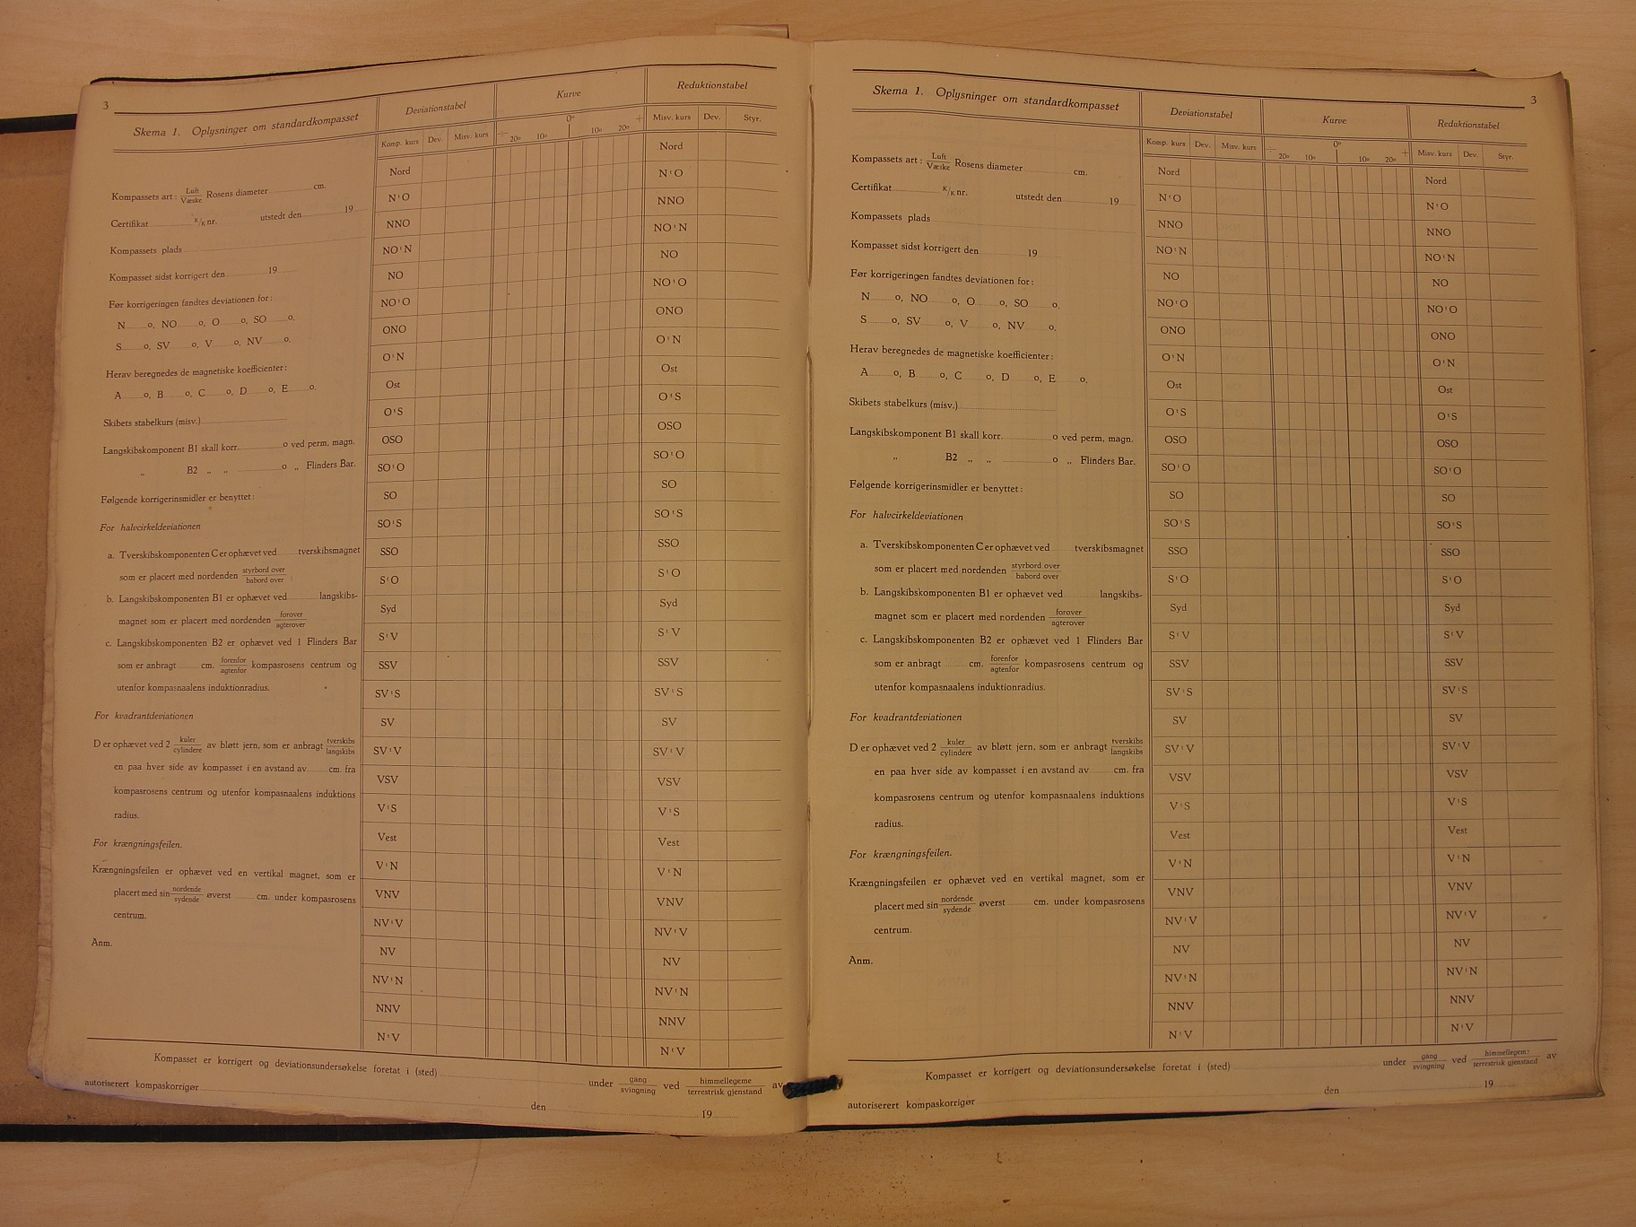 3
Skema 1. Oplysninger om standardkompasset
Kompassets art: Luft/Væske Rosens diameter cm.
Certifikat K/K nr. utstedt den 19
Kompassets plads
Kompasset sidst korrigert den 19
Før korrigeringen fandtes deviationen for:
N o, NO o, O o, SO o.
S o, SV o, V o, NV o.
Herav beregnedes de magnetiske koefficienter:
A o, B o, C o, D o, E o.
Skibets stabelkurs (misv.)
Langskibskomponent B1 skall korr. o ved perm. magn.
„ B2 „ „ o „ Flinders Bar.
Følgende korrigerinsmidler er benyttet:
For halvcirkeldeviationen
a. Tverskibskomponenten C er ophævet ved tverskibsmagnet
som er placert med nordenden styrbord over/babord over
b. Langskibskomponenten B1 er ophævet ved langskibs-
magnet som er placert med nordenden forover/agterover
c. Langskibskomponenten B2 er ophævet ved 1 Flinders Bar
som er anbragt cm. forenfor/agtenfor kompasrosens centrum og
utenfor kompasnaalens induktionradius.
For kvadrantdeviationen
D er ophævet ved 2 kuler/cylindere av bløtt jern, som er anbragt tverskibs/langskibs
en paa hver side av kompasset i en avstand av cm. fra
kompasrosens centrum og utenfor kompasnaalens induktions
radius.
For krængningsfeilen.
Krængningsfeilen er ophævet ved en vertikal magnet, som er
placert med sin nordende/sydende øverst cm. under kompasrosens
centrum.
Anm.
Deviationstabel
Komp. kurs Dev. Misv. kurs
Nord
N ᵗ O
NNO
NO ᵗ N
NO
NO ᵗ O
ONO
O ᵗ N
Ost
O ᵗ S
OSO
SO ᵗ O
SO
SO ᵗ S
SSO
S ᵗ O
Syd
S ᵗ V
SSV
SV ᵗ S
SV
SV ᵗ V
VSV
V ᵗ S
Vest
V ᵗ N
VNV
NV ᵗ V
NV
NV ᵗ N
NNV
N ᵗ V
Kurve
÷ 20° 10° 0° 10° 20° +
Reduktionstabel
Misv. kurs Dev. Styr.
Nord
N ᵗ O
NNO
NO ᵗ N
NO
NO ᵗ O
ONO
O ᵗ N
Ost
O ᵗ S
OSO
SO ᵗ O
SO
SO ᵗ S
SSO
S ᵗ O
Syd
S ᵗ V
SSV
SV ᵗ S
SV
SV ᵗ V
VSV
V ᵗ S
Vest
V ᵗ N
VNV
NV ᵗ V
NV
NV ᵗ N
NNV
N ᵗ V
Kompasset er korrigert og deviationsundersøkelse foretat i (sted) under gang/svingning ved himmellegeme/terrestrisk gjenstand av
autoriserert kompaskorrigør den 19
3
Skema 1. Oplysninger om standardkompasset
Kompassets art: Luft/Væske Rosens diameter cm.
Certifikat K/K nr. utstedt den 19
Kompassets plads
Kompasset sidst korrigert den 19
Før korrigeringen fandtes deviationen for:
N o, NO o, O o, SO o.
S o, SV o, V o, NV o.
Herav beregnedes de magnetiske koefficienter:
A o, B o, C o, D o, E o.
Skibets stabelkurs (misv.)
Langskibskomponent B1 skall korr. o ved perm. magn.
„ B2 „ „ o „ Flinders Bar.
Følgende korrigerinsmidler er benyttet:
For halvcirkeldeviationen
a. Tverskibskomponenten C er ophævet ved tverskibsmagnet
som er placert med nordenden styrbord over/babord over
b. Langskibskomponenten B1 er ophævet ved langskibs-
magnet som er placert med nordenden forover/agterover
c. Langskibskomponenten B2 er ophævet ved 1 Flinders Bar
som er anbragt cm. forenfor/agtenfor kompasrosens centrum og
utenfor kompasnaalens induktionradius.
For kvadrantdeviationen
D er ophævet ved 2 kuler/cylindere av bløtt jern, som er anbragt tverskibs/langskibs
en paa hver side av kompasset i en avstand av cm. fra
kompasrosens centrum og utenfor kompasnaalens induktions
radius.
For krængningsfeilen.
Krængningsfeilen er ophævet ved en vertikal magnet, som er
placert med sin nordende/sydende øverst cm. under kompasrosens
centrum.
Anm.
Deviationstabel
Komp. kurs Dev. Misv. kurs
Nord
N ᵗ O
NNO
NO ᵗ N
NO
NO ᵗ O
ONO
O ᵗ N
Ost
O ᵗ S
OSO
SO ᵗ O
SO
SO ᵗ S
SSO
S ᵗ O
Syd
S ᵗ V
SSV
SV ᵗ S
SV
SV ᵗ V
VSV
V ᵗ S
Vest
V ᵗ N
VNV
NV ᵗ V
NV
NV ᵗ N
NNV
N ᵗ V
Kurve
÷ 20° 10° 0° 10° 20° +
Reduktionstabel
Misv. kurs Dev. Styr.
Nord
N ᵗ O
NNO
NO ᵗ N
NO
NO ᵗ O
ONO
O ᵗ N
Ost
O ᵗ S
OSO
SO ᵗ O
SO
SO ᵗ S
SSO
S ᵗ O
Syd
S ᵗ V
SSV
SV ᵗ S
SV
SV ᵗ V
VSV
V ᵗ S
Vest
V ᵗ N
VNV
NV ᵗ V
NV
NV ᵗ N
NNV
N ᵗ V
Kompasset er korrigert og deviationsundersøkelse foretat i (sted) under gang/svingning ved himmellegeme/terrestrisk gjenstand av
autoriserert kompaskorrigør den 19